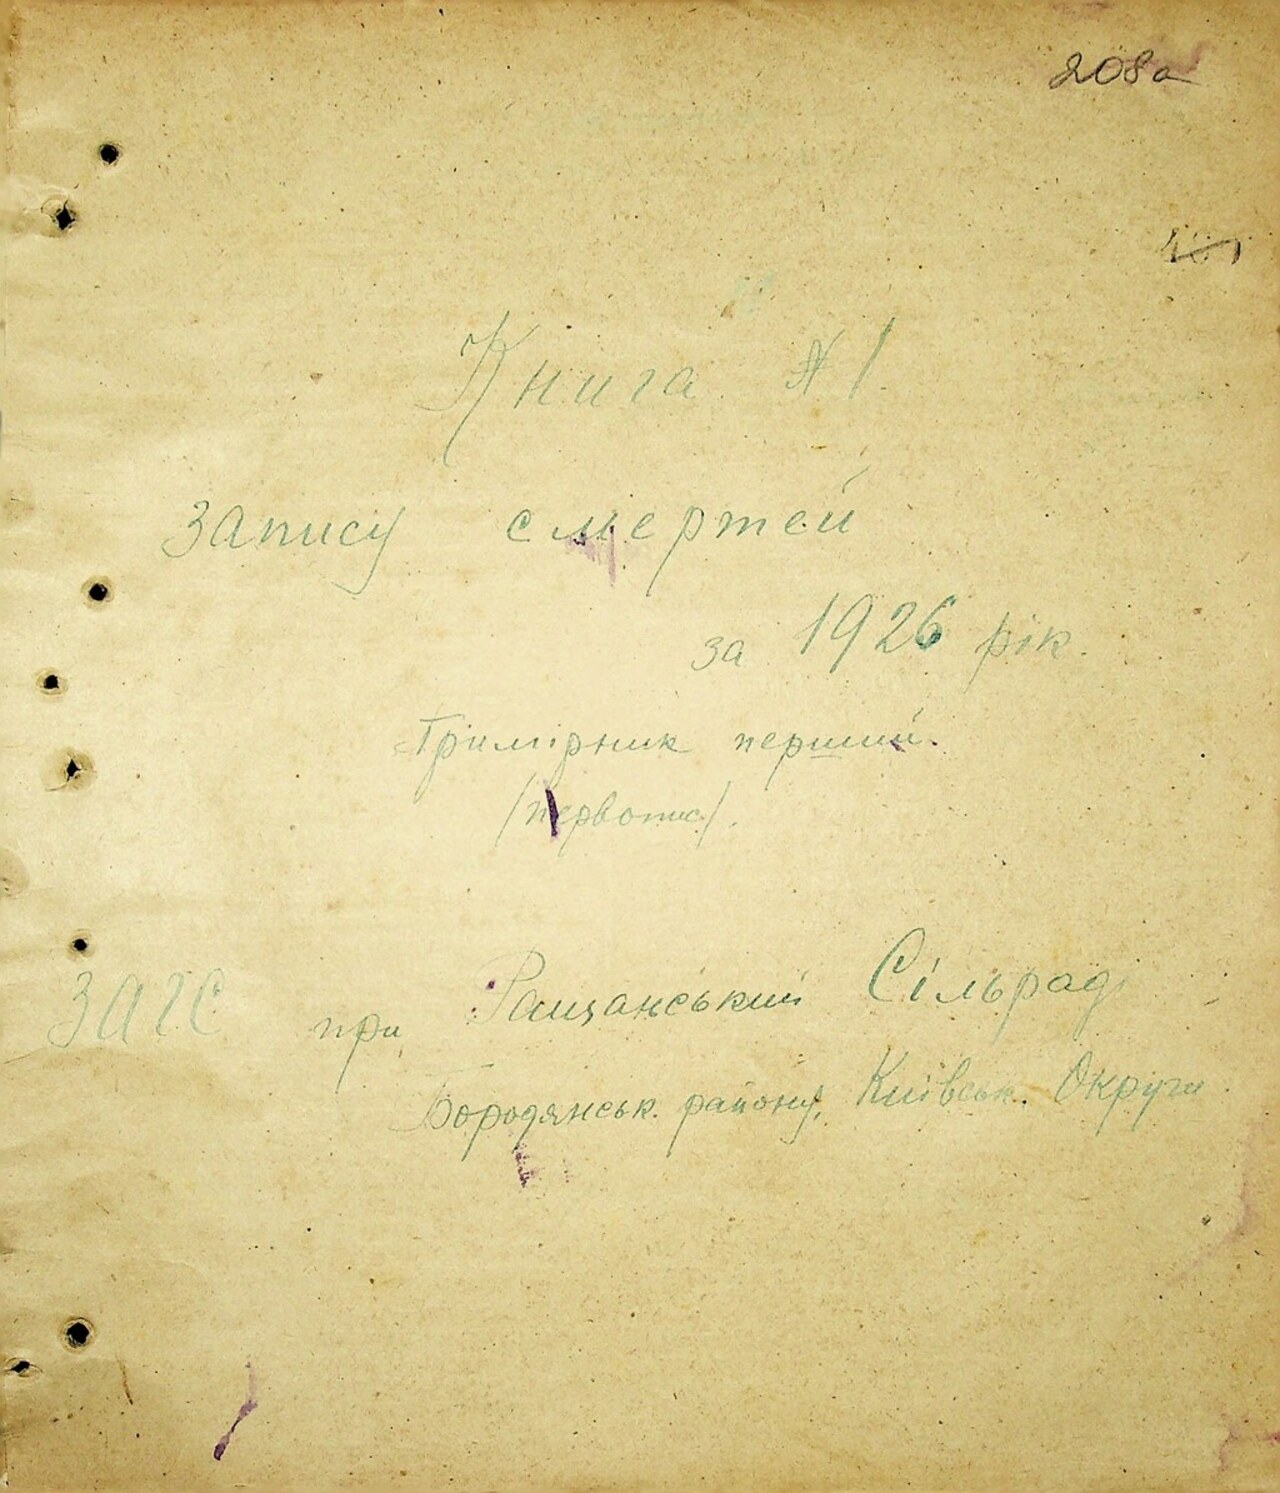 208а
Книга №1.
запису смертей
за 1926 рік.
Примірник перший.
/первопис/.
ЗАГС при Ращанський Сільраді
Бородянськ. району, Київськ. Округи.